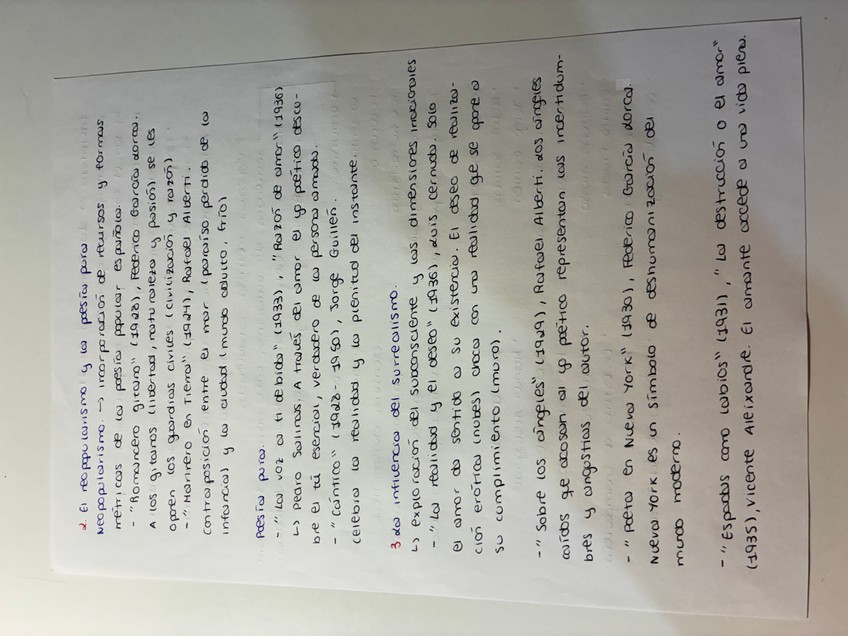 2. El neopopularismo y la poesía pura
Neopopularismo → incorporación de recursos y formas
métricas de la poesía popular española.
- "Romancero gitano" (1928), Federico García Lorca.
A los gitanos (libertad, naturaleza y pasión) se les
oponen los guardias civiles (civilización y razón)
- "Marinero en Tierra" (1924), Rafael Alberti.
contraposición entre el mar (paraíso perdido de la
infancia) y la ciudad (mundo adulto, frío)
Poesía pura.
- "La voz a ti debida" (1933), "Razón de amor" (1936)
↳ Pedro Salinas. A través del amor el yo poético descu-
bre el tú esencial, verdadero de la persona amada.
- "Cántico" (1928-1950), Jorge Guillén.
celebra la realidad y la plenitud del instante.
3 La influencia del surrealismo.
↳ exploración del subconsciente y las dimensiones irracionales
- "La realidad y el deseo" (1936), Luis Cernuda. Solo
el amor da sentido a su existencia. El deseo de realiza-
ción erótica (nubes) choca con una realidad qe se opone a
su cumplimiento (muro).
- "Sobre los ángeles" (1929), Rafael Alberti. Los ángeles
caídos qe acosan al yo poético representan las incertidum-
bres y angustias del autor.
- "Poeta en Nueva York" (1930), Federico García Lorca.
Nueva York es un símbolo de deshumanización del
mundo moderno.
- "Espadas como labios" (1931), "La destrucción o el amor"
(1935), Vicente Aleixandre. El amante accede a una vida plena.